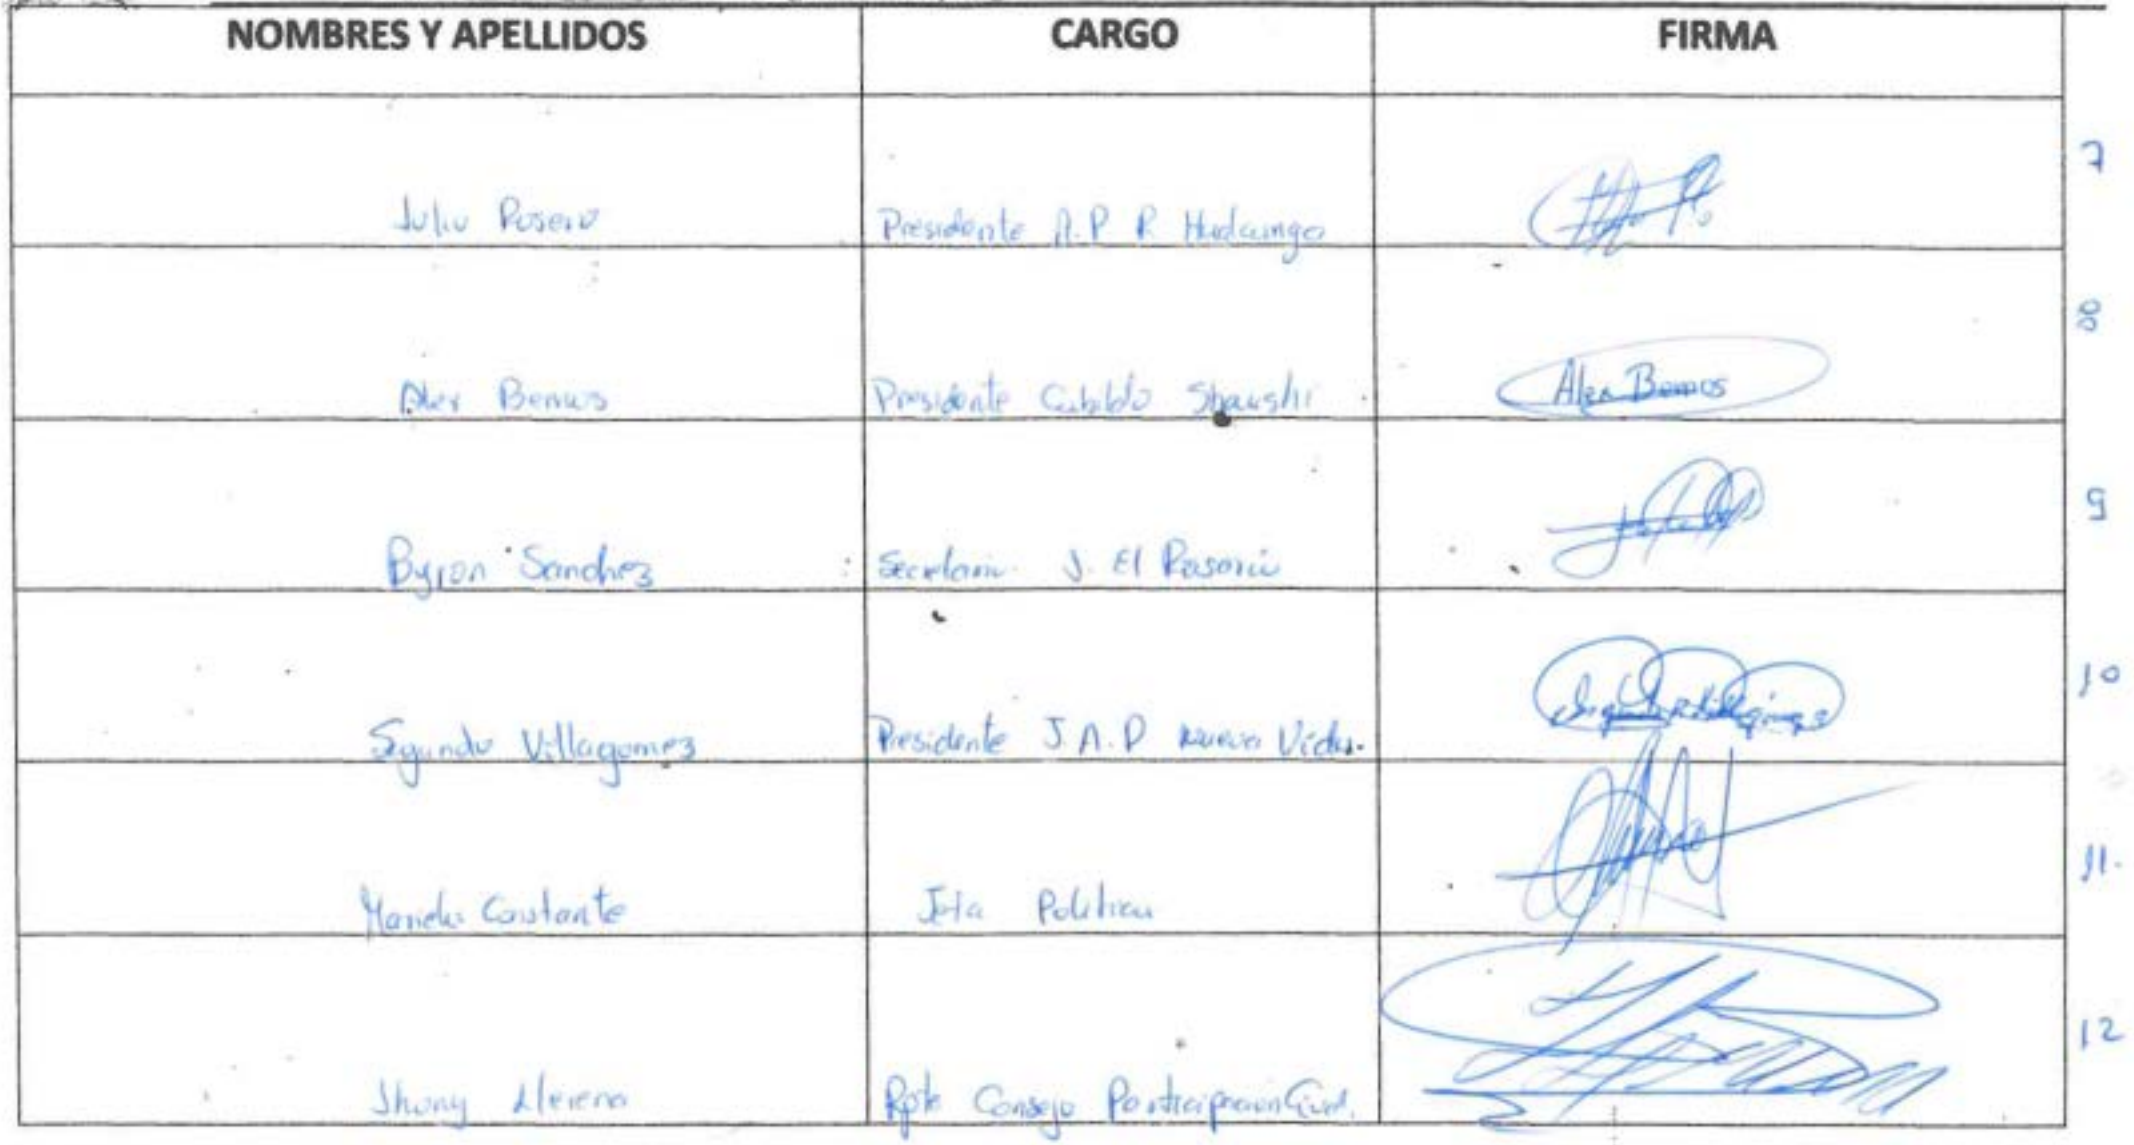 NOMBRES Y APELLIDOS CARGO FIRMA
Julio Rosero Presidente A.P R. Hualcanga 7
Alex Bemus Presidente Cabildo Shaushi Alex Bemos 8
Byron Sanchez Secretario J. El Rosario 9
Segundo Villagomez Presidente J.A.P Nueva Vida. 10
Mariela Constante Jefa Politica 11.
Jhony Llerena Rpte Consejo Participacion Ciud. 12